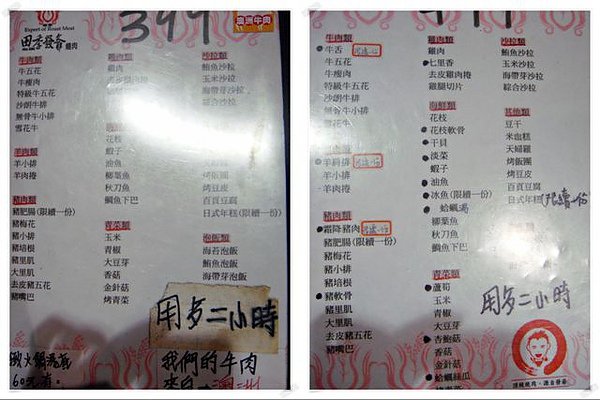 Expert of Roast Meat
399
澳洲牛肉
田季發爺
燒肉
牛肉類
牛五花
牛瘦肉
特級牛五花
沙朗牛排
無骨牛小排
雪花牛
羊肉類
羊小排
羊肉捲
豬肉類
豬肥腸(限續一份)
豬梅花
豬小排
豬培根
豬里肌
大里肌
去皮豬五花
豬嘴巴
雞肉類
雞肉
去皮雞肉捲
花枝
蝦子
油魚
柳葉魚
秋刀魚
鯛魚下巴
青菜類
玉米
青椒
大豆芽
香菇
金針菇
烤青菜
沙拉類
鮪魚沙拉
玉米沙拉
海帶芽沙拉
綜合沙拉
烤飯團
烤豆皮
百頁豆腐
日式年糕(限續一份)
泡飯類
海苔泡飯
鮪魚泡飯
海帶芽泡飯
用多二小時
我們的牛肉
來自澳洲
牛肉類
牛舌
牛五花
牛瘦肉
特級牛五花
沙朗牛排
無骨牛小排
雪花牛
羊肉類
羊肩排
羊小排
羊肉捲
豬肉類
霜降豬肉
豬肥腸(限續一份)
豬梅花
豬小排
豬培根
豬軟骨
豬里肌
大里肌
去皮豬五花
豬嘴巴
雞肉類
雞肉
七里香
去皮雞肉捲
雞腿切片
海鮮類
花枝
花枝軟骨
干貝
淡菜
蝦子
油魚
冰魚(限續一份)
蛤蠣湯
柳葉魚
秋刀魚
鯛魚下巴
青菜類
蘆筍
玉米
青椒
大豆芽
杏鮑菇
香菇
金針菇
蛤蠣絲瓜
沙拉類
鮪魚沙拉
玉米沙拉
海帶芽沙拉
綜合沙拉
其他類
豆干
米血糕
天婦羅
烤飯團
烤豆皮
百頁豆腐
日式年糕(限續一份)
用多二小時
頂級燒肉・源自發爺